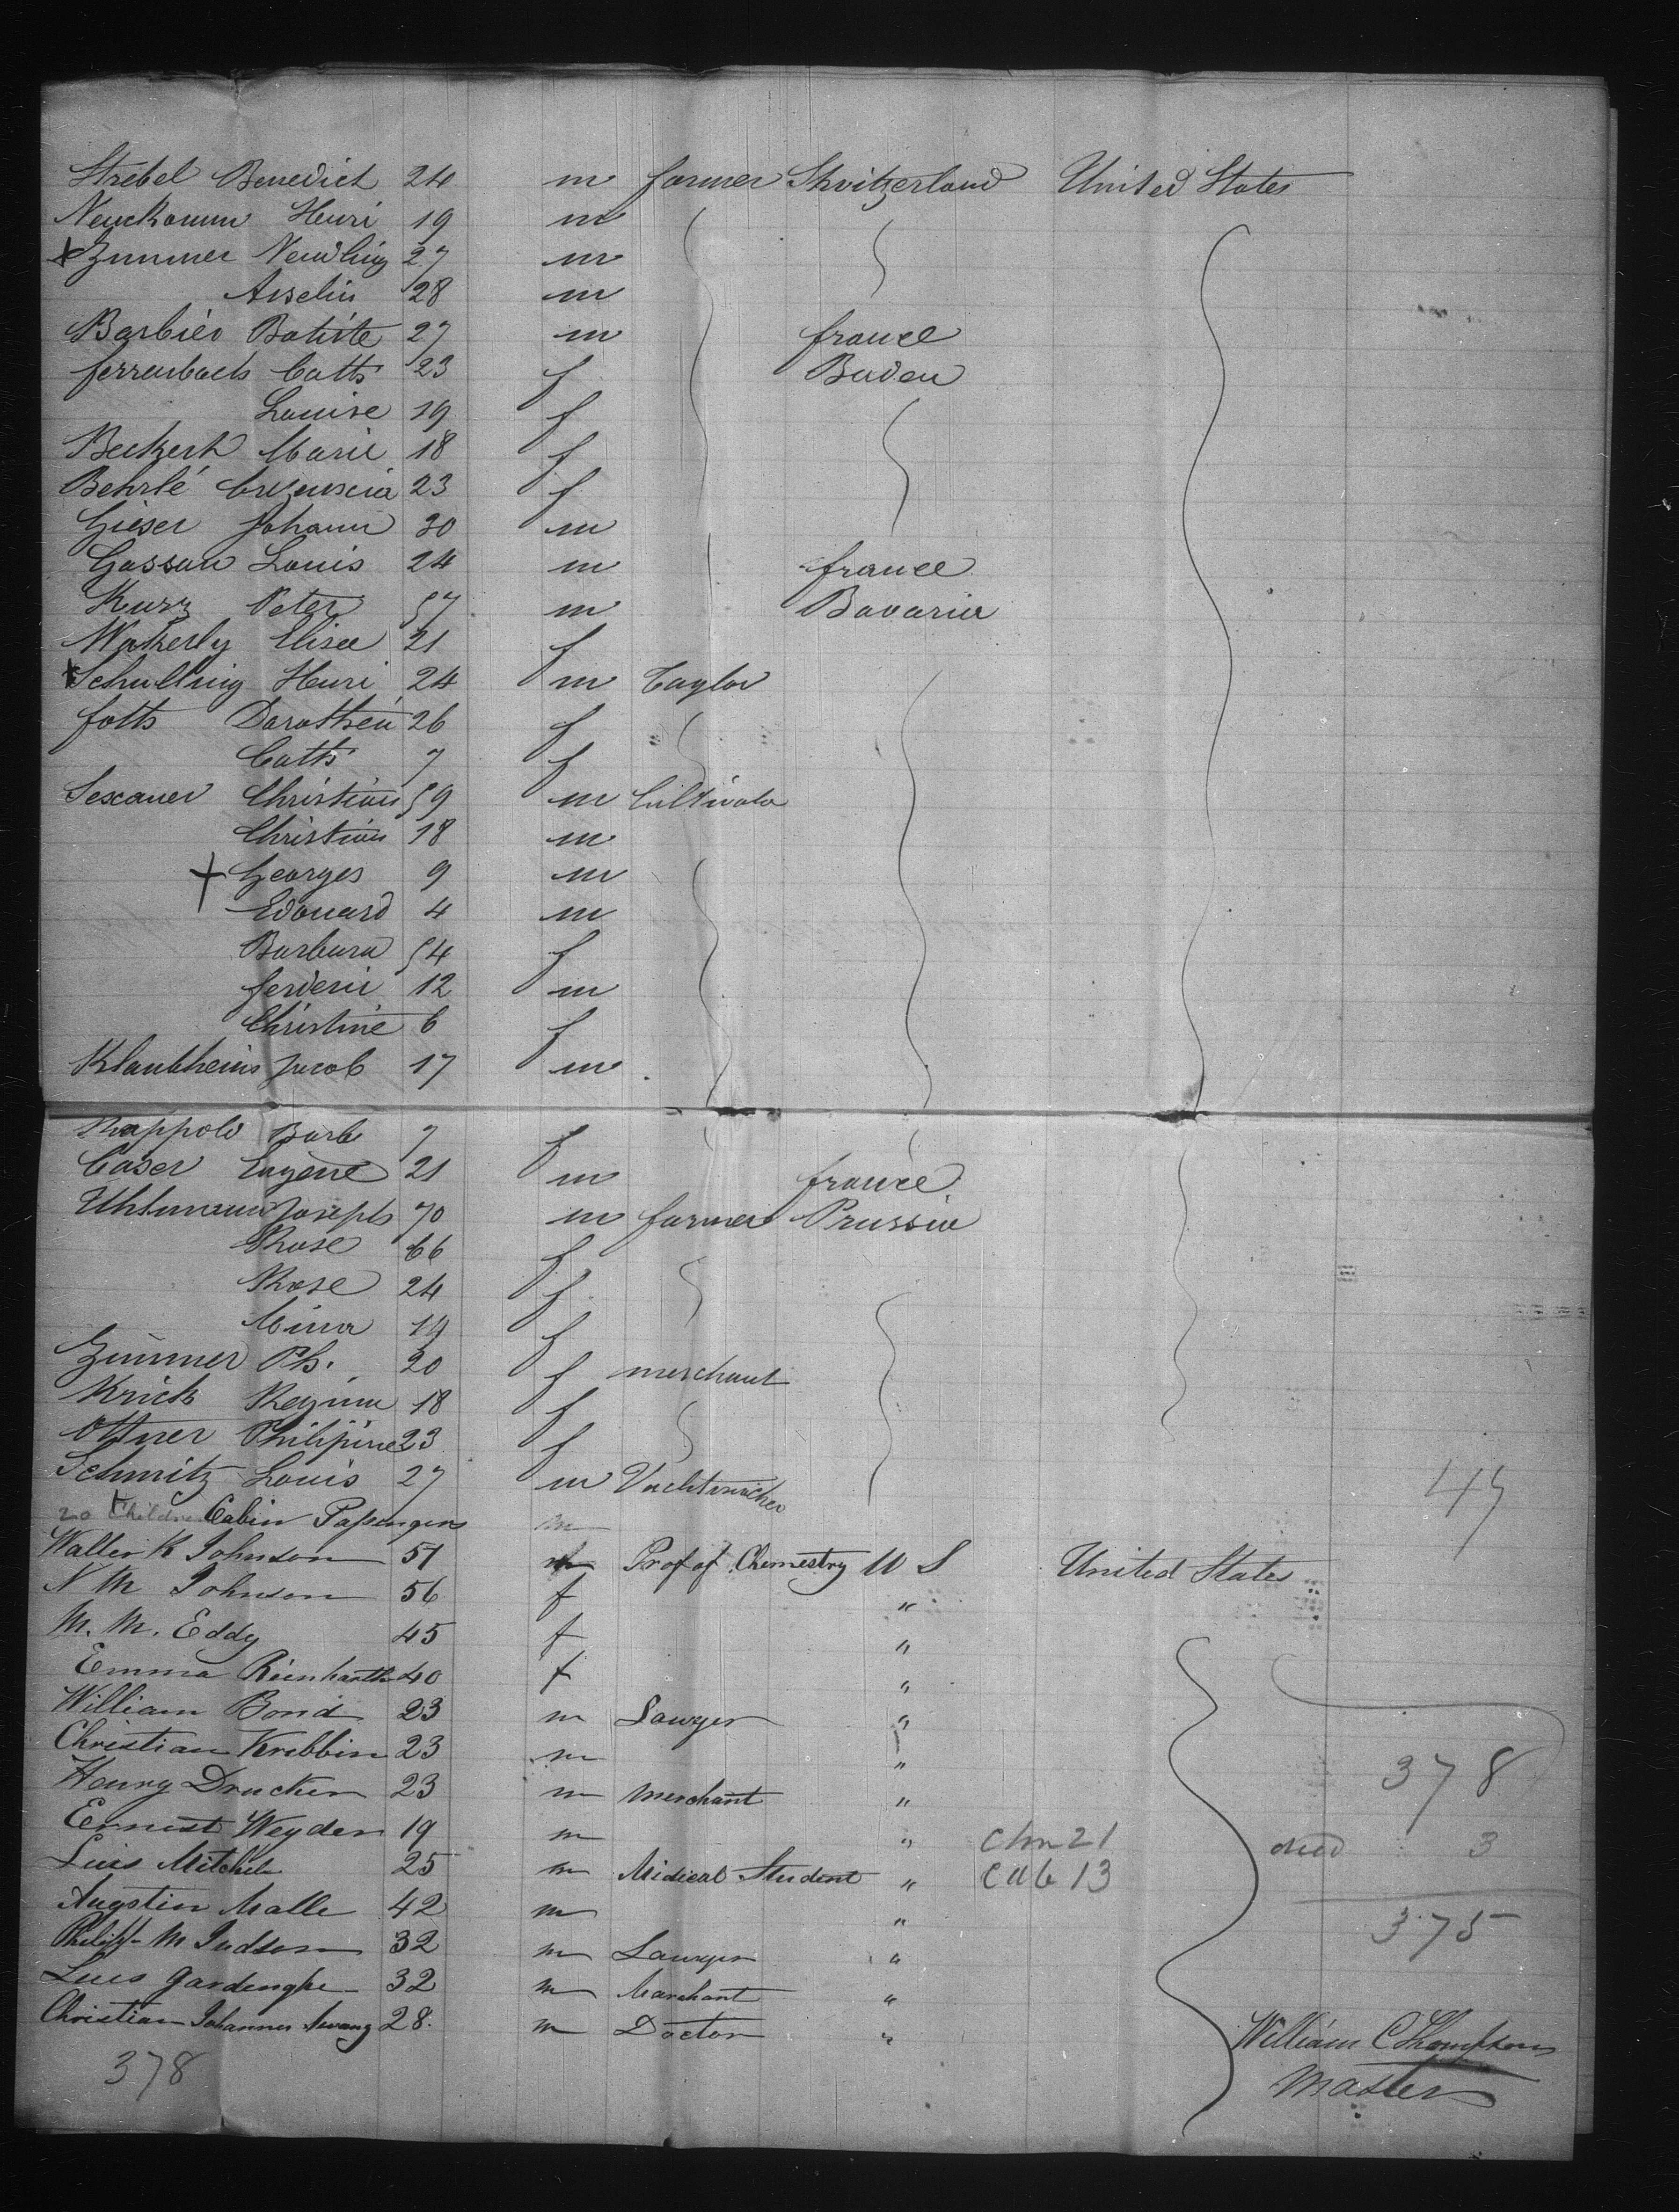 Strebel Benedict 24 m farmer Shvitzerland United States
Neuckomm Henri 19 m
x Zummer 27 m
28 m
Barbier Batiste 27 m france
ferrenbach Cath 23 f Baden
Louise 19 f
Beckert Marie 18 f
Behrlé 23 f
Gieser Johann 30 m
Gassau Louis 24 m france
Kurz Peter 57 m Bavaria
Wakerly Elise 21 f
x Schulling Henri 24 m Taylor
foth Dorothée 26 f
Cath 7 f
Sexauer Christian 59 m Cultivator
Christian 18 m
+ Georges 9 m
Edouard 4 m
Barbara 54 f
12 m
Christine 6 f
Jacob 17 m
Rappold Barb 7 f
Caser Eugene 21 m france
Uhlmann Joseph 70 m farmer Prussia
Rose 66 f
Rose 24 f
Mina 19 f
Zimmer Ph. 20 f merchant
Krick Regina 18 f
Ottner Philipine 23 f
Schmitz Louis 27 m
45
20 Children Cabin Passengers m
Walter R Johnson 51 m Prof of Chemestry U S United States
N M Johnson 56 f "
M. M. Eddy 45 f "
Emma Reinharth 40 f "
William Bond 23 m Lawyer "
Christian Kribbin 23 m "
Henry Drucker 23 m Merchant " 378
Ernest Weyden 19 m " Chn 21 died 3
Luis Mitchel 25 m Midical Student " Cab 13
Augstin Malle 42 m " 375
Philipp M Judson 32 m Lawyer "
Luis 32 m Marchant "
Christian Johannes 28. m Doctor "
William C Thompson
Master
378